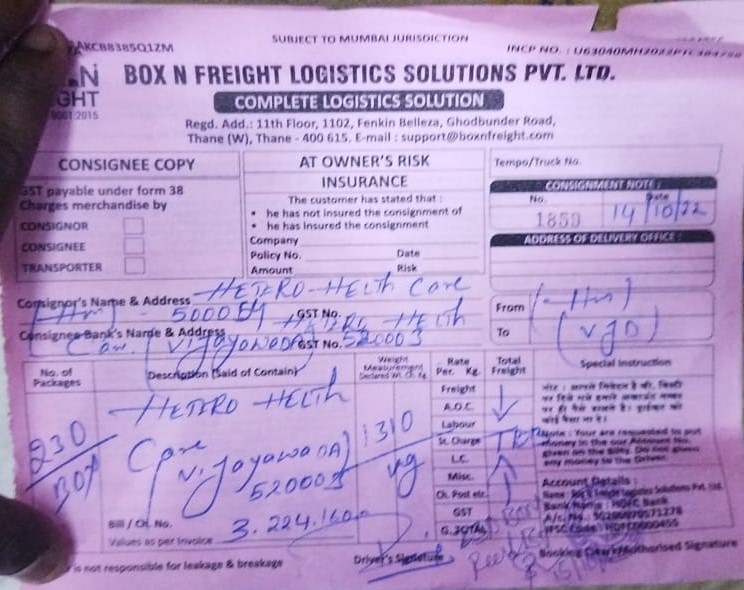 AKCB8385Q1ZM
SUBJECT TO MUMBAI JURISDICTION
INCP NO. :
GHT
9001:2015
BOX N FREIGHT LOGISTICS SOLUTIONS PVT. LTD.
COMPLETE LOGISTICS SOLUTION
Regd. Add.: 11th Floor, 1102, Fenkin Belleza, Ghodbunder Road,
Thane (W), Thane - 400 615. E-mail : support@boxnfreight.com
CONSIGNEE COPY
GST payable under form 38
Charges merchandise by
CONSIGNOR
CONSIGNEE
TRANSPORTER
AT OWNER'S RISK
INSURANCE
The customer has stated that :
• he has not insured the consignment of
• he has insured the consignment
Company
Policy No. Date
Amount Risk
Tempo/Truck No.
CONSIGNMENT NOTE :
No. Date
1859 14/10/22
ADDRESS OF DELIVERY OFFICE :
Consignor's Name & Address HETERO-HELTH Care
GST No.
Consignee Bank's Name & Address HETERO HELTH
Care (Vijayawada) GST No. 520003
From
To (VJD)
No. of Packages
Description (Said of Contain)
Weight Measurement
Rate Per. Kg.
Total Freight
Special Instruction
230
BOX
HETERO HELTH
Care
Vijayawada)
520003
310
Freight
A.O.C.
Labour
St. Charge
L.C.
Misc.
Ch. Post etc.
GST
G. TOTAL
Note : Your are requested to put
money in the our Account No.
given on the Bilty. Do not given
any money to the Driver.
Account Details :
Bank Name : HDFC Bank
Bill / CH. No.
Values as per Invoice
is not responsible for leakage & breakage
Driver's Signature
Booking Clerk/Authorised Signature